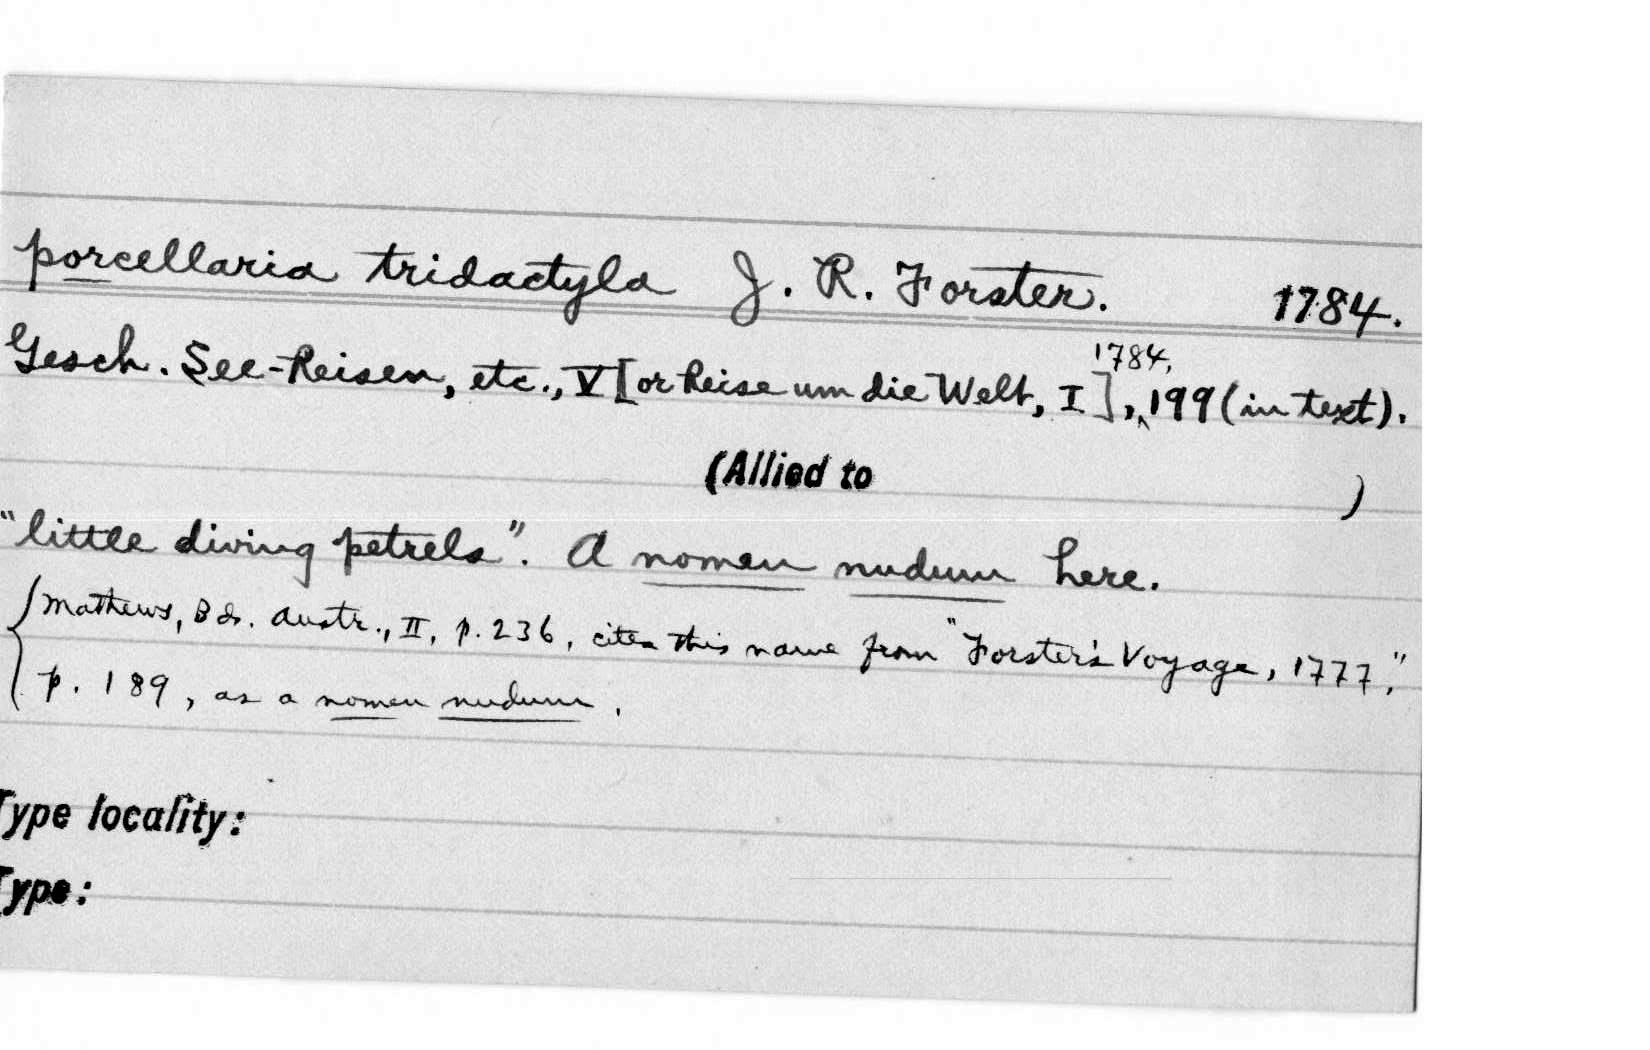 porcellaria tridactyla J. R. Forster. 1784.
Gesch. See-Reisen, etc., V [or Reise um die Welt, I], 1784, 199 (in text).
(Allied to )
"little diving petrels". A nomen nudum here.
{Mathews, Bds. Austr., II, p. 236, cites this name from "Forster's Voyage, 1777,"
p. 189, as a nomen nudum.
Type locality:
Type: